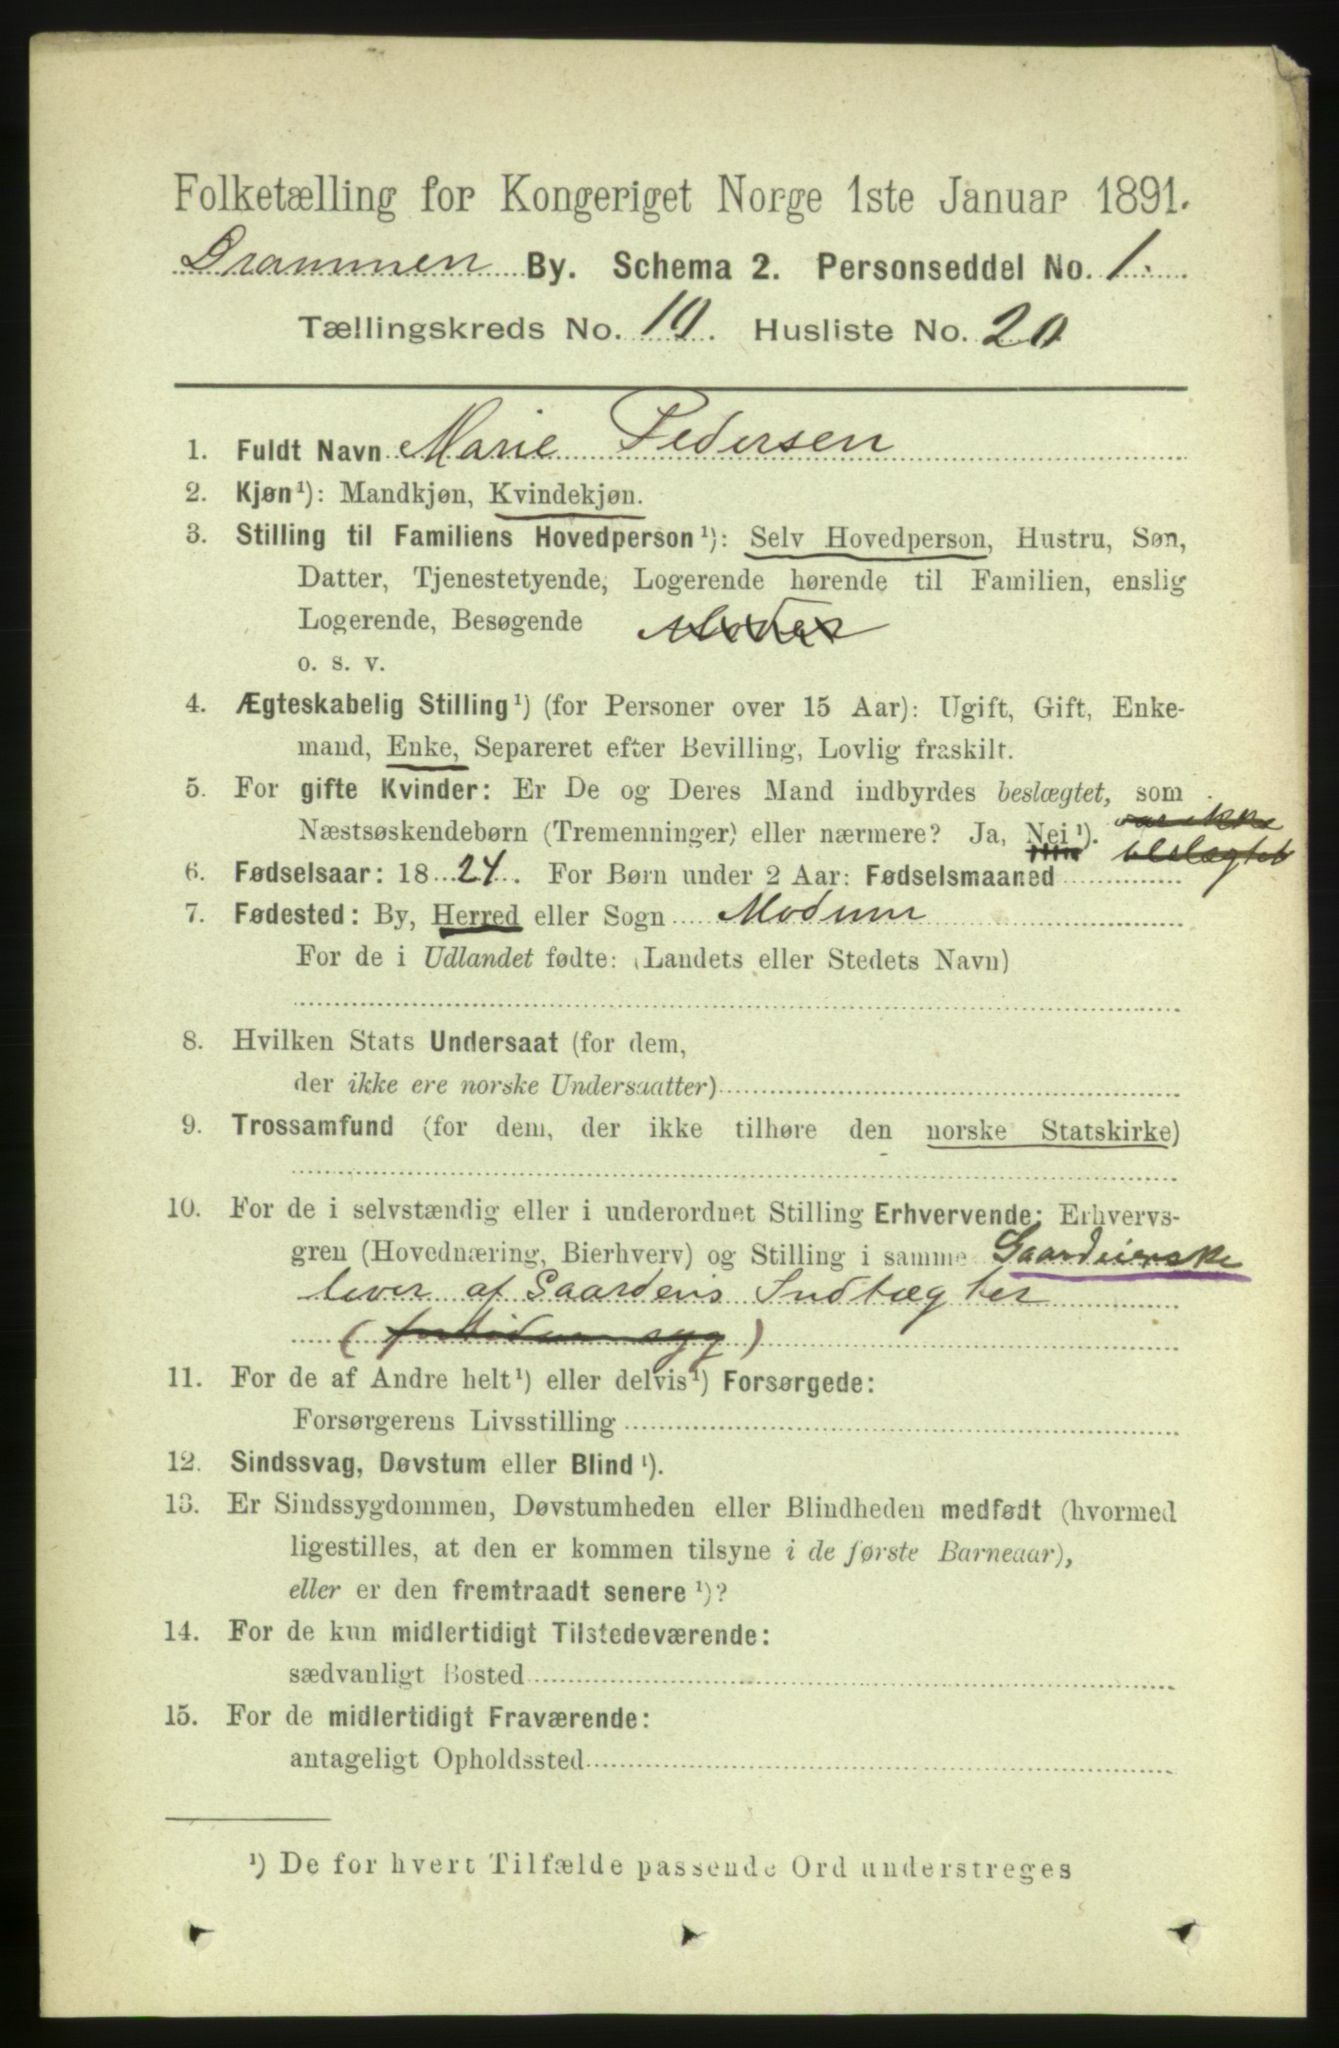 Folketælling for Kongeriget Norge 1ste Januar 1891.
Drammen By. Schema 2. Personseddel No. 1.
Tællingskreds No. 10. Husliste No. 20
1. Fuldt Navn Marie Pedersen
2. Kjøn¹): Mandkjøn, Kvindekjøn.
3. Stilling til Familiens Hovedperson¹): Selv Hovedperson, Hustru, Søn,
Datter, Tjenestetyende, Logerende hørende til Familien, enslig
Logerende, Besøgende Moder
o. s. v.
4. Ægteskabelig Stilling¹) (for Personer over 15 Aar): Ugift, Gift, Enke-
mand, Enke, Separeret efter Bevilling, Lovlig fraskilt.
5. For gifte Kvinder: Er De og Deres Mand indbyrdes beslægtet, som
Næstsøskendebørn (Tremenninger) eller nærmere? Ja, Nei¹). var ikke
beslægtet
6. Fødselsaar: 1824. For Børn under 2 Aar: Fødselsmaaned
7. Fødested: By, Herred eller Sogn Modum
For de i Udlandet fødte: (Landets eller Stedets Navn)
8. Hvilken Stats Undersaat (for dem,
der ikke ere norske Undersaatter)
9. Trossamfund (for dem, der ikke tilhøre den norske Statskirke)
10. For de i selvstændig eller i underordnet Stilling Erhvervende: Erhvervs-
gren (Hovednæring, Bierhverv) og Stilling i samme Gaardeierske
lever af Gaardens Indtægter
( syg )
11. For de af Andre helt¹) eller delvis¹) Forsørgede:
Forsørgerens Livsstilling
12. Sindssvag, Døvstum eller Blind¹).
13. Er Sindssygdommen, Døvstumheden eller Blindheden medfødt (hvormed
ligestilles, at den er kommen tilsyne i de første Barneaar),
eller er den fremtraadt senere¹)?
14. For de kun midlertidigt Tilstedeværende:
sædvanligt Bosted
15. For de midlertidigt Fraværende:
antageligt Opholdssted
¹) De for hvert Tilfælde passende Ord understreges